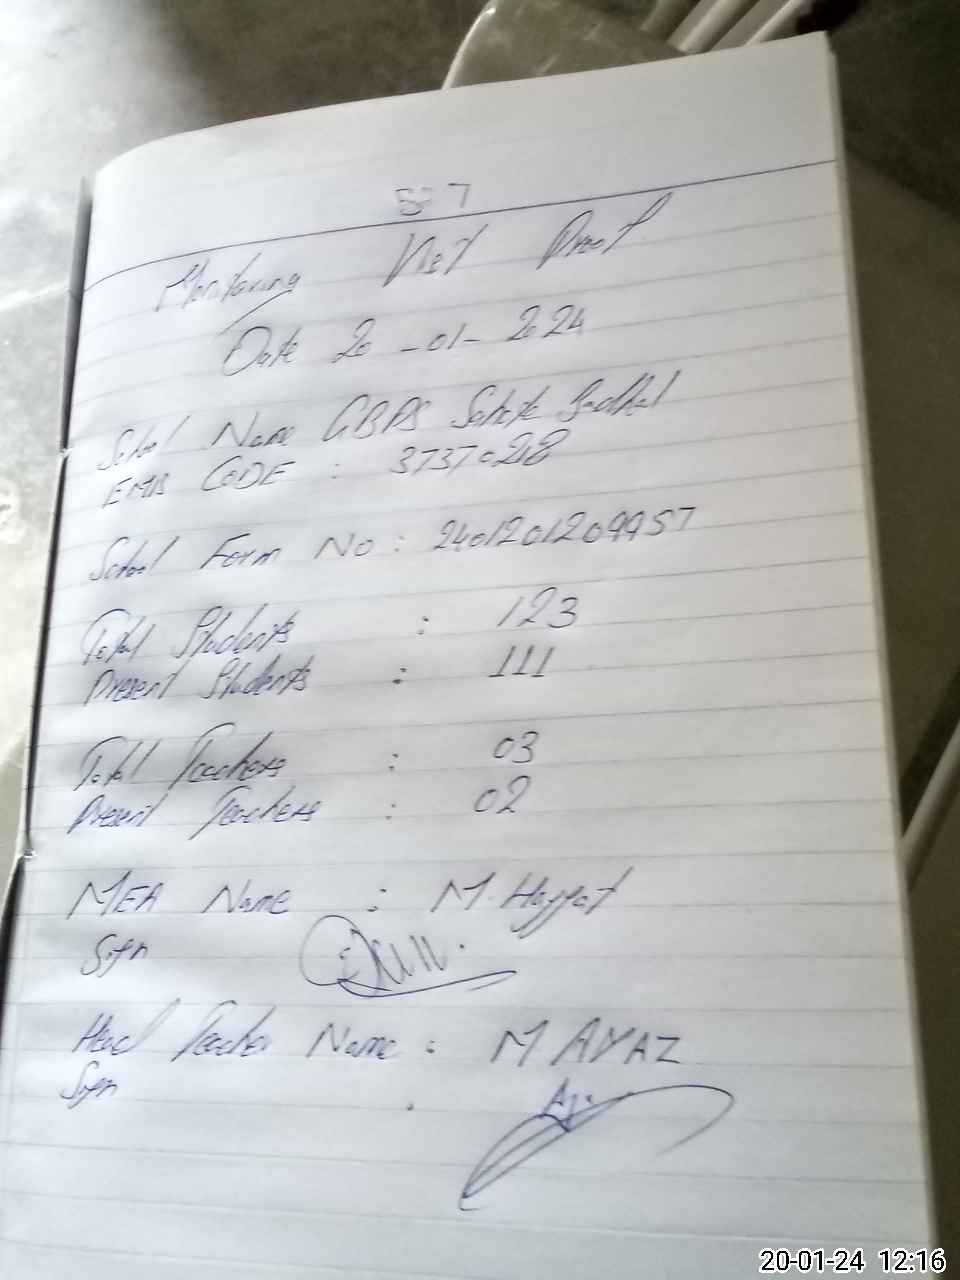 Monitoring Visit Proof
Date 20-01-2024
School Name GBPS
EMIS CODE :
School Form No : 2401201209957
Total Students : 123
Present Students : 111
Total Teachers : 03
Present Teachers : 02
MEA Name : M. Hayyat
Sign
Head Teacher Name : M AYAZ
Sign :
20-01-24 12:16